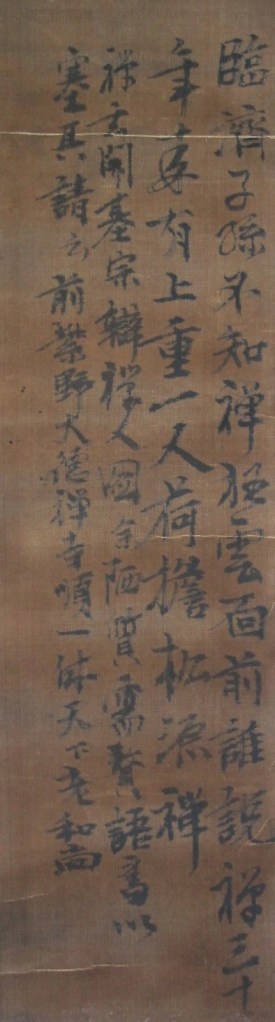 臨濟子孫不知禪狂雲面前誰說禪三十
年来肩上重一人荷擔松源禪
禅玄開基宗辯禅人圖余陋質需賛語書以
塞其請云前紫野大德禅寺順一休天下老和尚